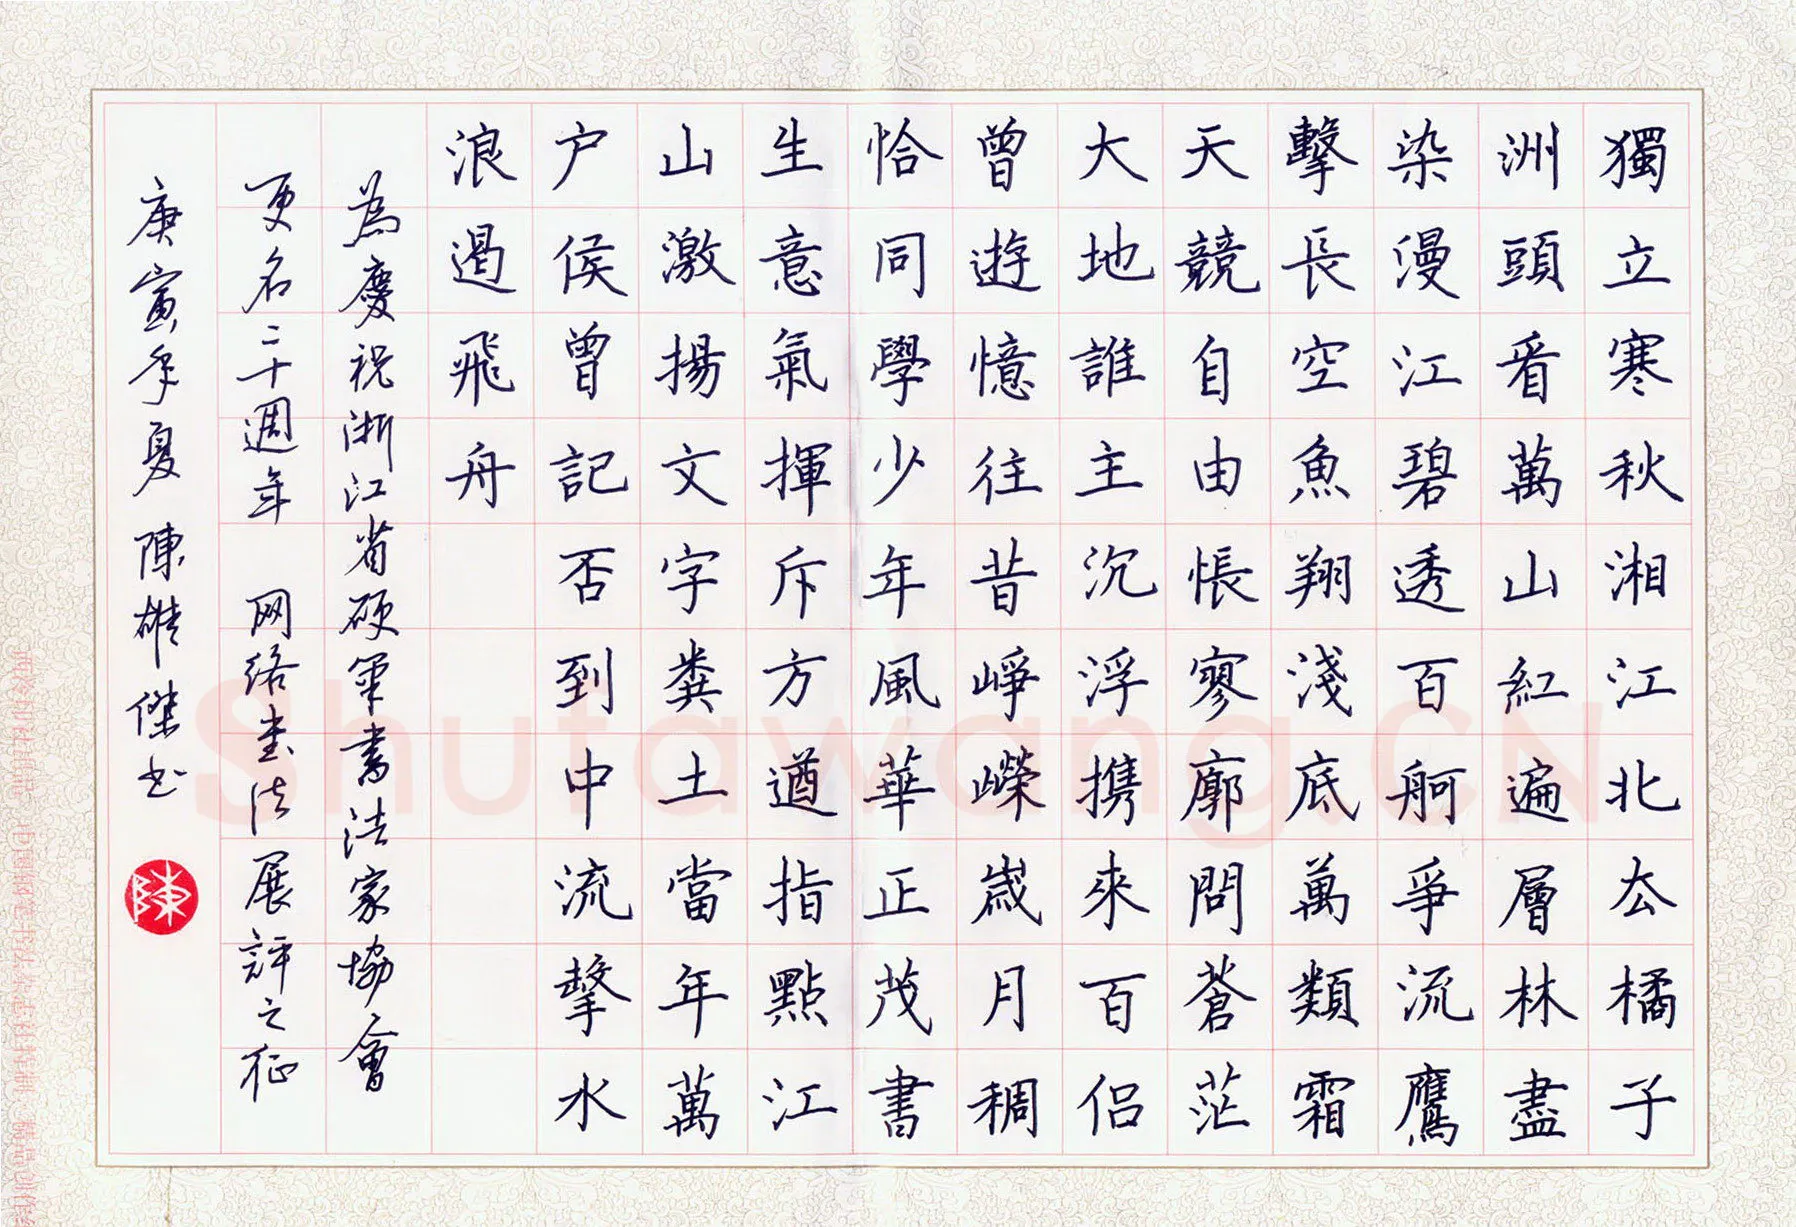 獨立寒秋湘江北厺橘子
洲頭看萬山紅遍層林盡
染漫江碧透百舸爭流鷹
擊長空魚翔淺底萬類霜
天競自由悵寥廓問蒼茫
大地誰主沉浮攜來百侣
曾遊憶往昔崢嶸歲月稠
恰同學少年風華正茂書
生意氣揮斥方遒指點江
山激揚文字糞土當年萬
户侯曾記否到中流擊水
浪遏飛舟
為慶祝浙江省硬筆書法家協會
更名二十週年 网络书法展評之征
庚寅年夏 陳雄傑书
陳
Shufawang.CN